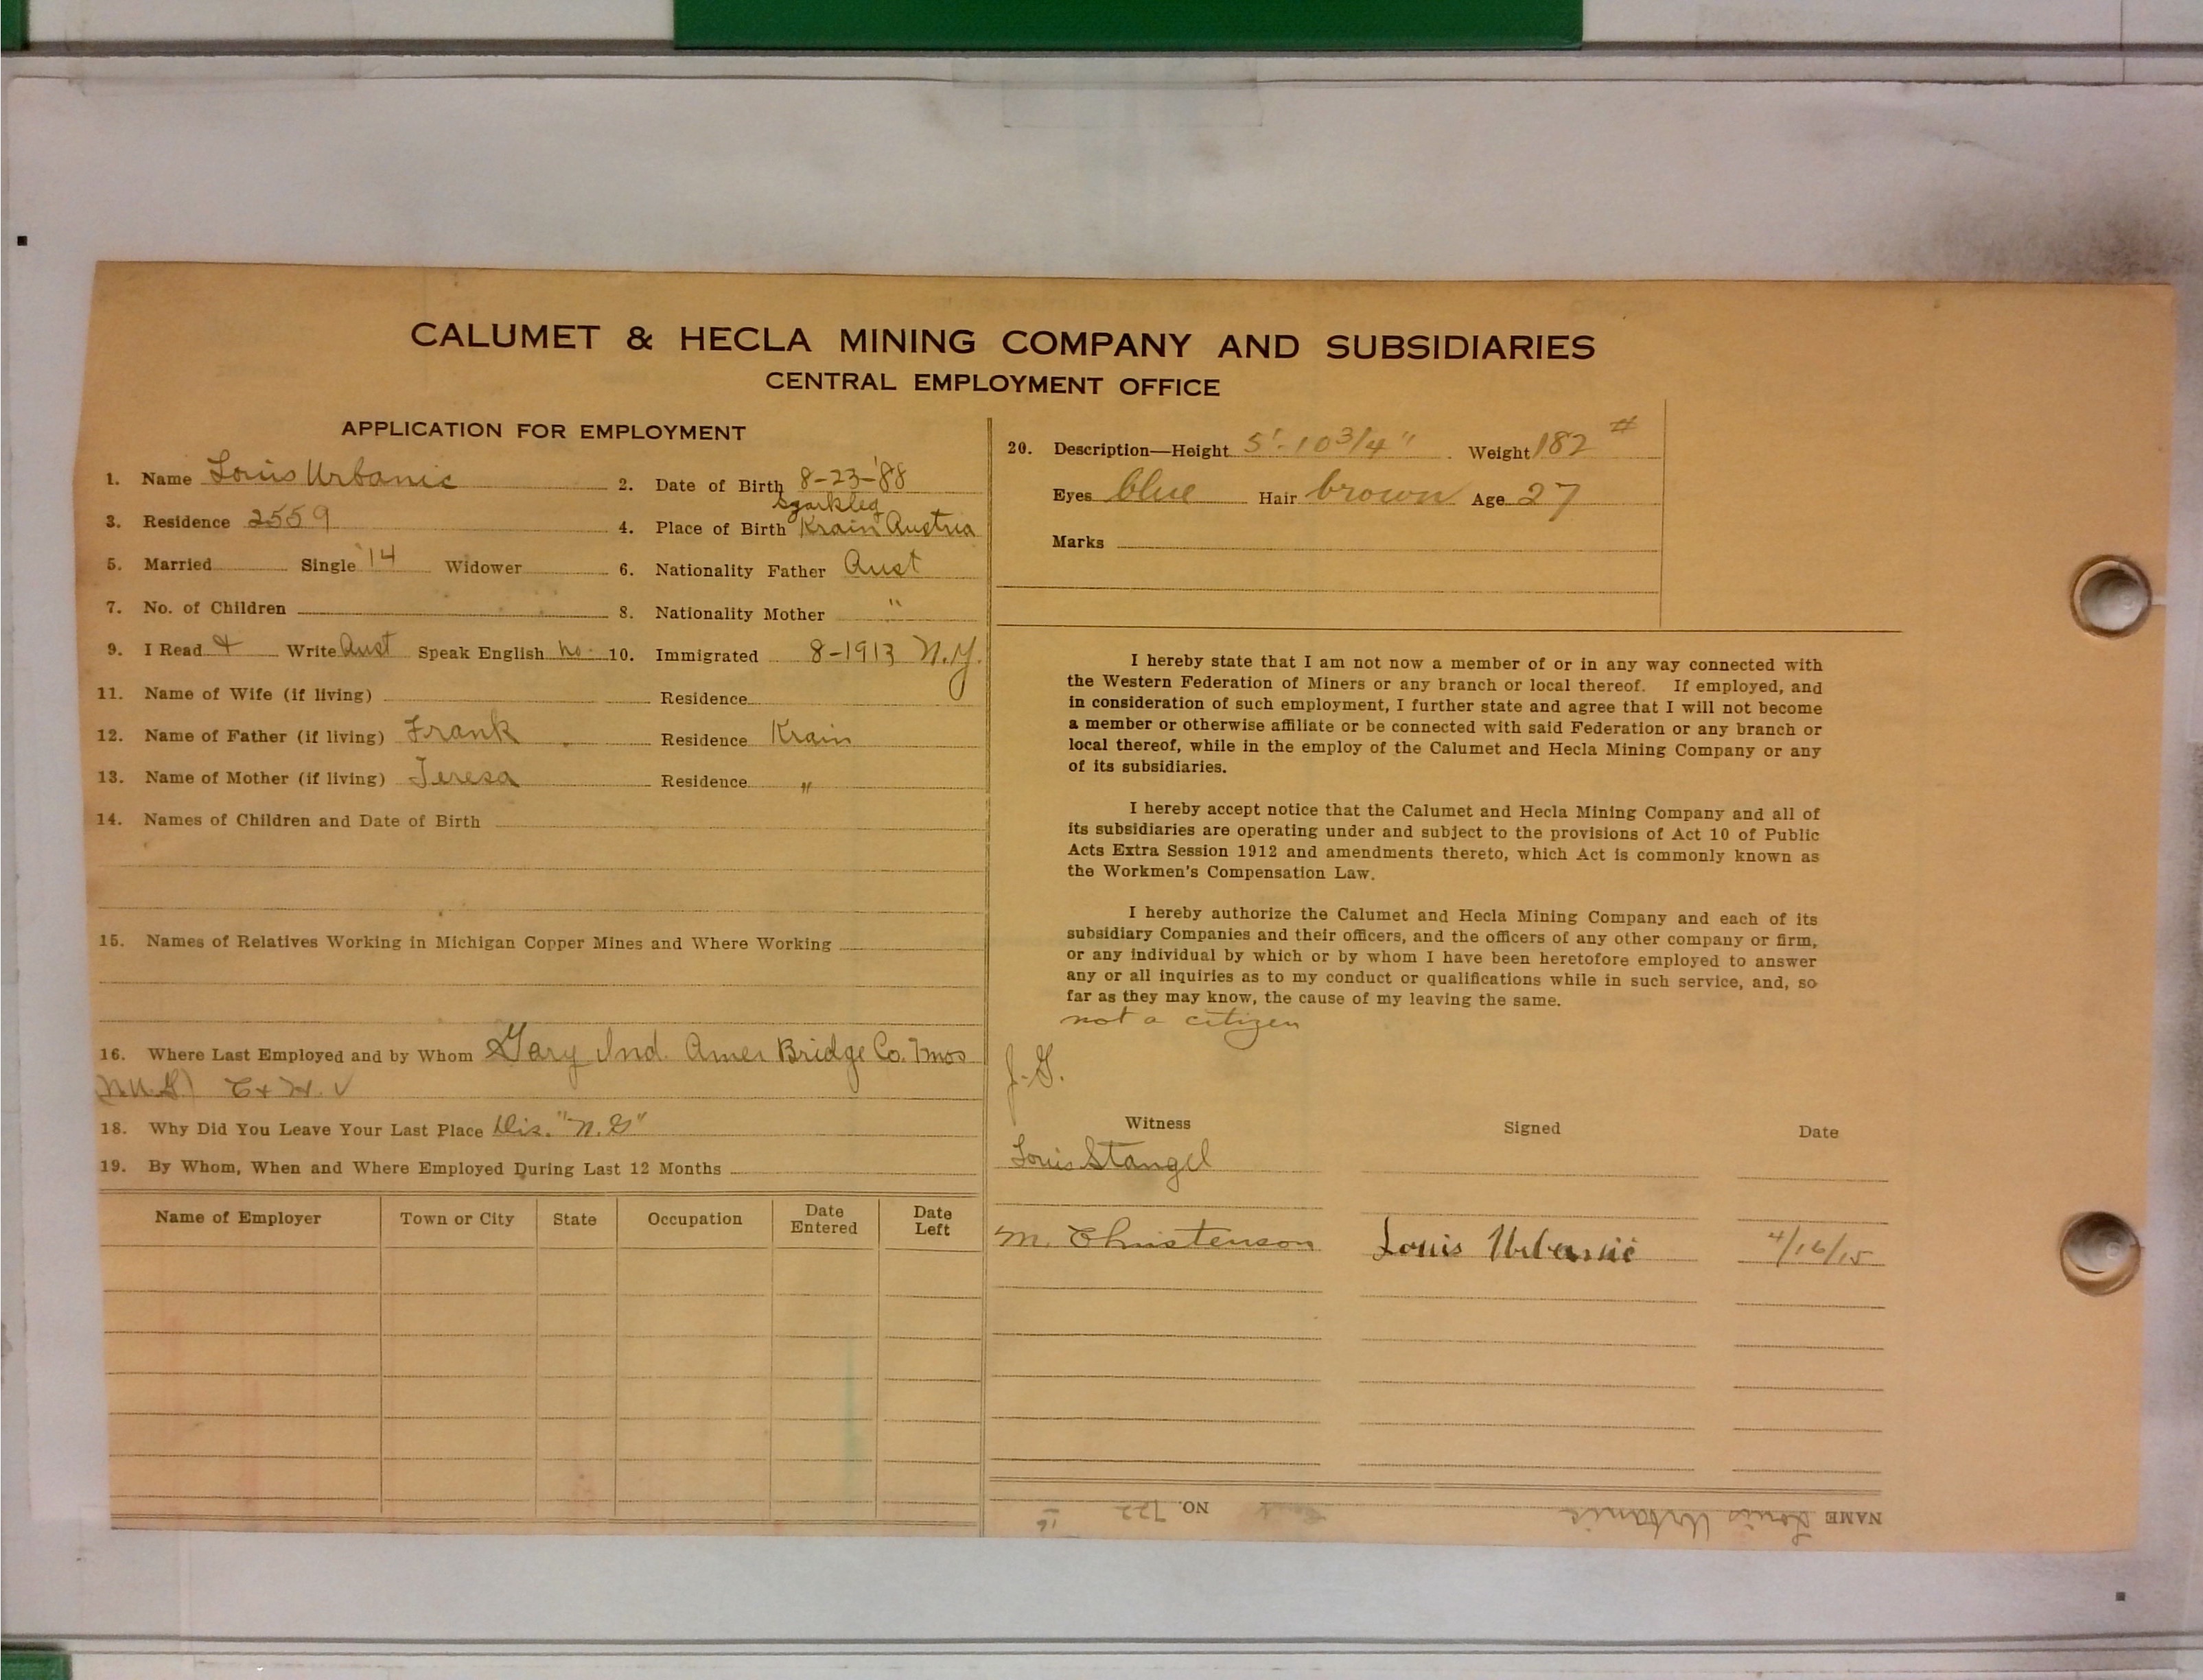 CALUMET & HECLA MINING COMPANY AND SUBSIDIARIES
CENTRAL EMPLOYMENT OFFICE
APPLICATION FOR EMPLOYMENT
1. Name Louis Urbanic 2. Date of Birth 8-23-'88
3. Residence 2559 4. Place of Birth Krain Austria
5. Married Single '14 Widower 6. Nationality Father Aust
7. No. of Children 8. Nationality Mother "
9. I Read & Write Aust Speak English no 10. Immigrated 8-1913 N.Y.
11. Name of Wife (if living) Residence
12. Name of Father (if living) Frank Residence Krain
13. Name of Mother (if living) Teresa Residence "
14. Names of Children and Date of Birth
15. Names of Relatives Working in Michigan Copper Mines and Where Working
16. Where Last Employed and by Whom Gary Ind. Amer Bridge Co. 7mos
C & H. ✓
18. Why Did You Leave Your Last Place Dis. "N.G"
19. By Whom, When and Where Employed During Last 12 Months
Name of Employer Town or City State Occupation Date Entered Date Left
20. Description—Height 5'-10 3/4" Weight 182 #
Eyes blue Hair brown Age 27
Marks
I hereby state that I am not now a member of or in any way connected with
the Western Federation of Miners or any branch or local thereof. If employed, and
in consideration of such employment, I further state and agree that I will not become
a member or otherwise affiliate or be connected with said Federation or any branch or
local thereof, while in the employ of the Calumet and Hecla Mining Company or any
of its subsidiaries.
I hereby accept notice that the Calumet and Hecla Mining Company and all of
its subsidiaries are operating under and subject to the provisions of Act 10 of Public
Acts Extra Session 1912 and amendments thereto, which Act is commonly known as
the Workmen's Compensation Law.
I hereby authorize the Calumet and Hecla Mining Company and each of its
subsidiary Companies and their officers, and the officers of any other company or firm,
or any individual by which or by whom I have been heretofore employed to answer
any or all inquiries as to my conduct or qualifications while in such service, and, so
far as they may know, the cause of my leaving the same.
not a citizen
J.G.
Witness Signed Date
Louis Stangel
M. Christenson Louis Urbanič 4/16/15
NAME Louis Urbanic NO. 722